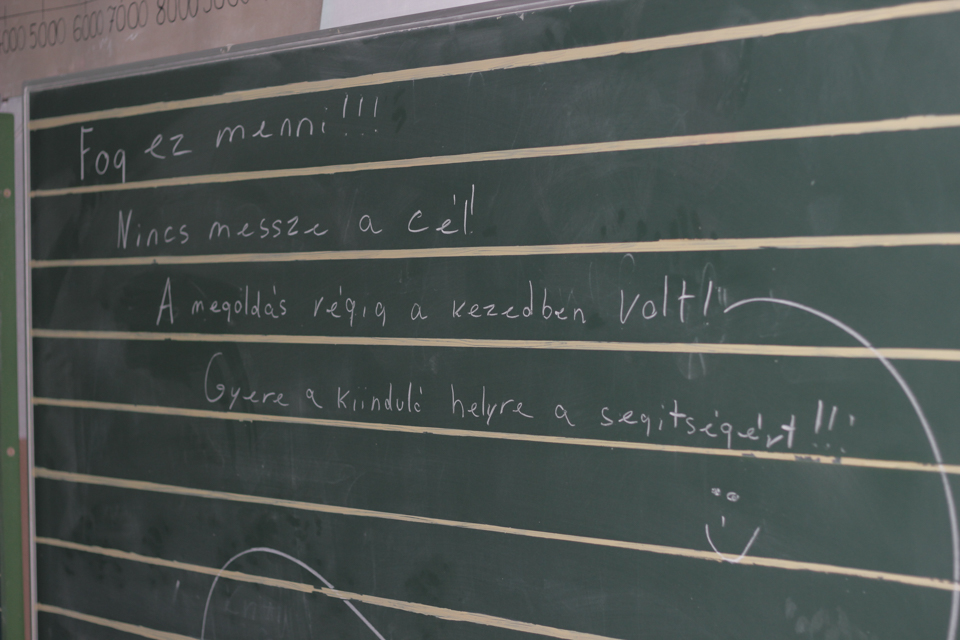 5000 6000 7000 8000
Fog ez menni!!!
Nincs messze a cél!
A mególdás végig a kezedben volt!
Gyere a kiinduló helyre a segítségért!!!